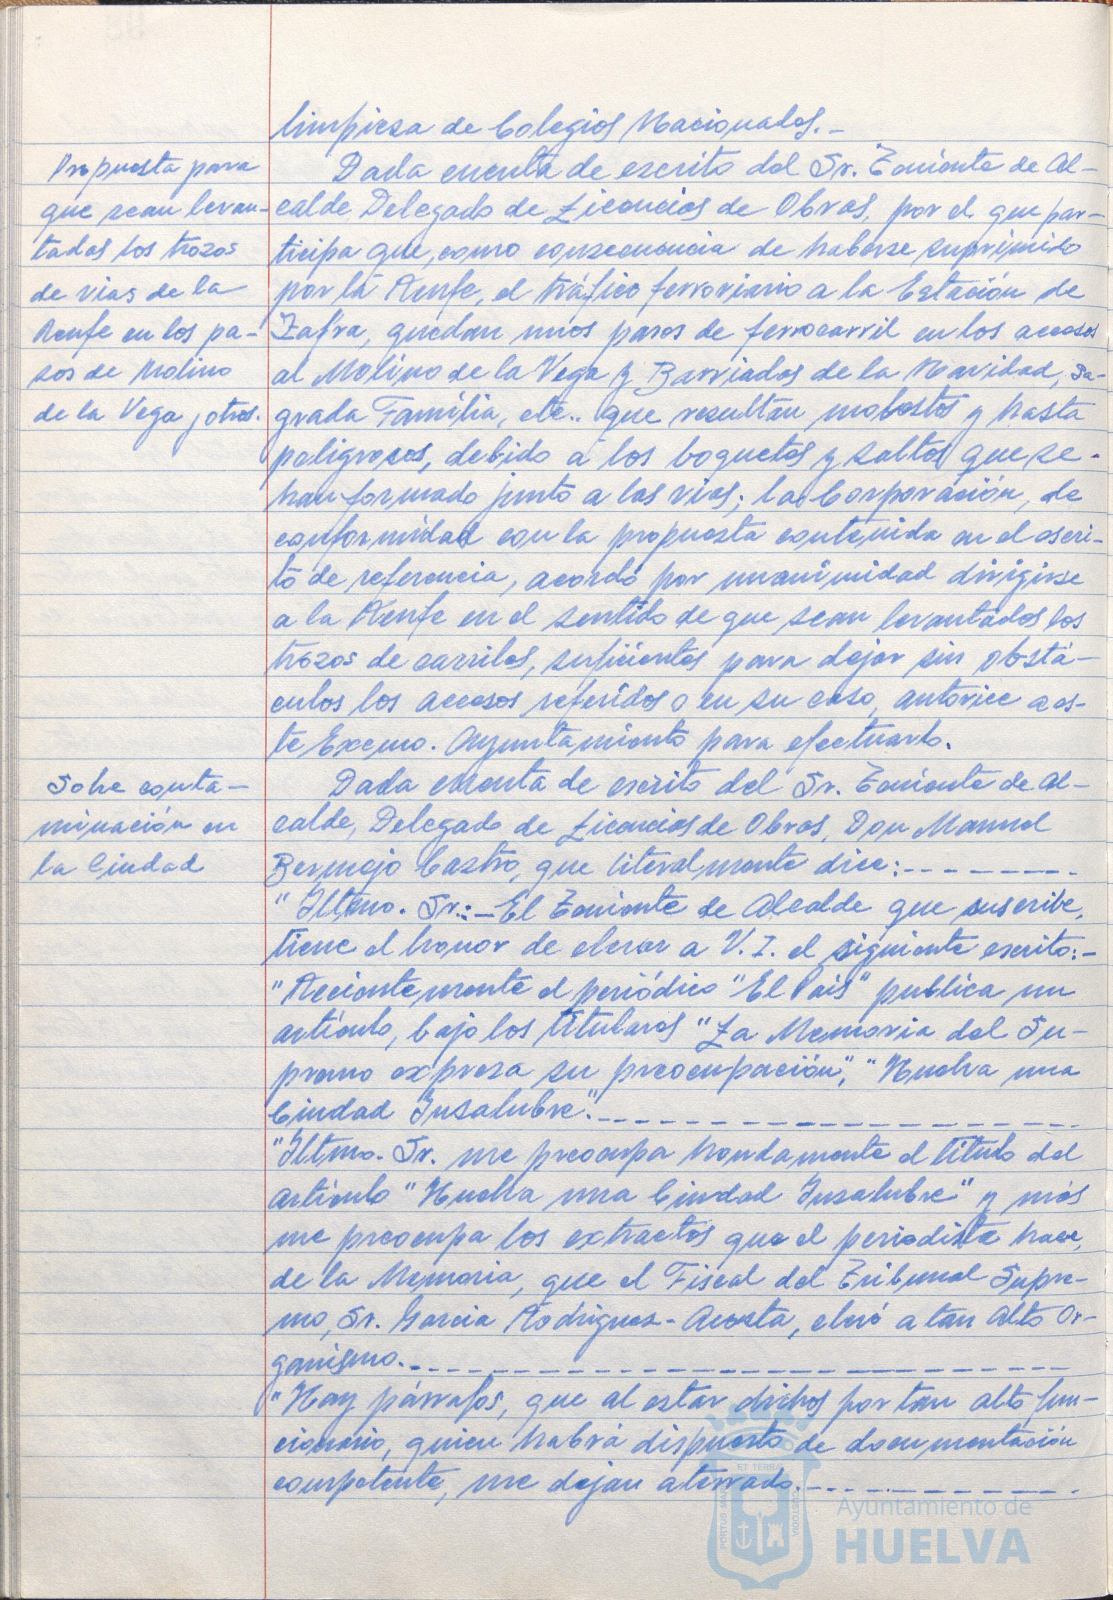 limpieza de Colegios Nacionales.-
Propuesta para
que sean levan-
tados los trozos
de vias de la
Renfe en los pa-
sos de Molino
de la Vega y otros.
Dada cuenta de escrito del Sr. Teniente de Al-
calde, Delegado de Licencias de Obras, por el que par-
ticipa que, como consecuencia de haberse suprimido
por la Renfe, el tráfico ferroviario a la Estación de
Zafra, quedan unos pasos de ferrocarril en los accesos
al Molino de la Vega y Barriadas de la Navidad, Sa-
grada Familia, etc.. que resultan molestos y hasta
peligrosos, debido a los boquetes y saltos que se
han formado junto a las vias; la Corporación, de
conformidad con la propuesta contenida en el escri-
to de referencia, acordó por unanimidad dirigirse
a la Renfe en el sentido de que sean levantados los
trozos de carriles, suficientes para dejar sin obstá-
culos los accesos referidos o en su caso, autorice a es-
te Excmo. Ayuntamiento para efectuarlo.
Sobre conta-
minación en
la Ciudad
Dada cuenta de escrito del Sr. Teniente de Al-
calde, Delegado de Licencias de Obras, Don Manuel
Bermejo Castro, que literalmente dice:--------.
"Iltmo. Sr.:-El Teniente de Alcalde que suscribe,
tiene el honor de elevar a V. I. el siguiente escrito:-
"Recientemente el periódico "El Pais" publica un
artículo, bajo los titulares "La Memoria del Su-
premo expresa su preocupación", "Huelva una
Ciudad Insalubre".--------------------.
"Iltmo. Sr. me preocupa hondamente el título del
artículo "Huelva una Ciudad Insalubre" y más
me preocupa los extractos que el periodista hace,
de la Memoria, que el Fiscal del Tribunal Supre-
mo, Sr. Garcia Rodriguez-Acosta, elevó a tan Alto Or-
ganismo.--------------------------
"Hay párrafos, que al estar dichos por tan alto fun-
cionario, quien habrá dispuesto de documentación
competente, me dejan aterrado.------------.
PORTUS MARIS
ET TERRAE
CUSTODIA
Ayuntamiento de
HUELVA